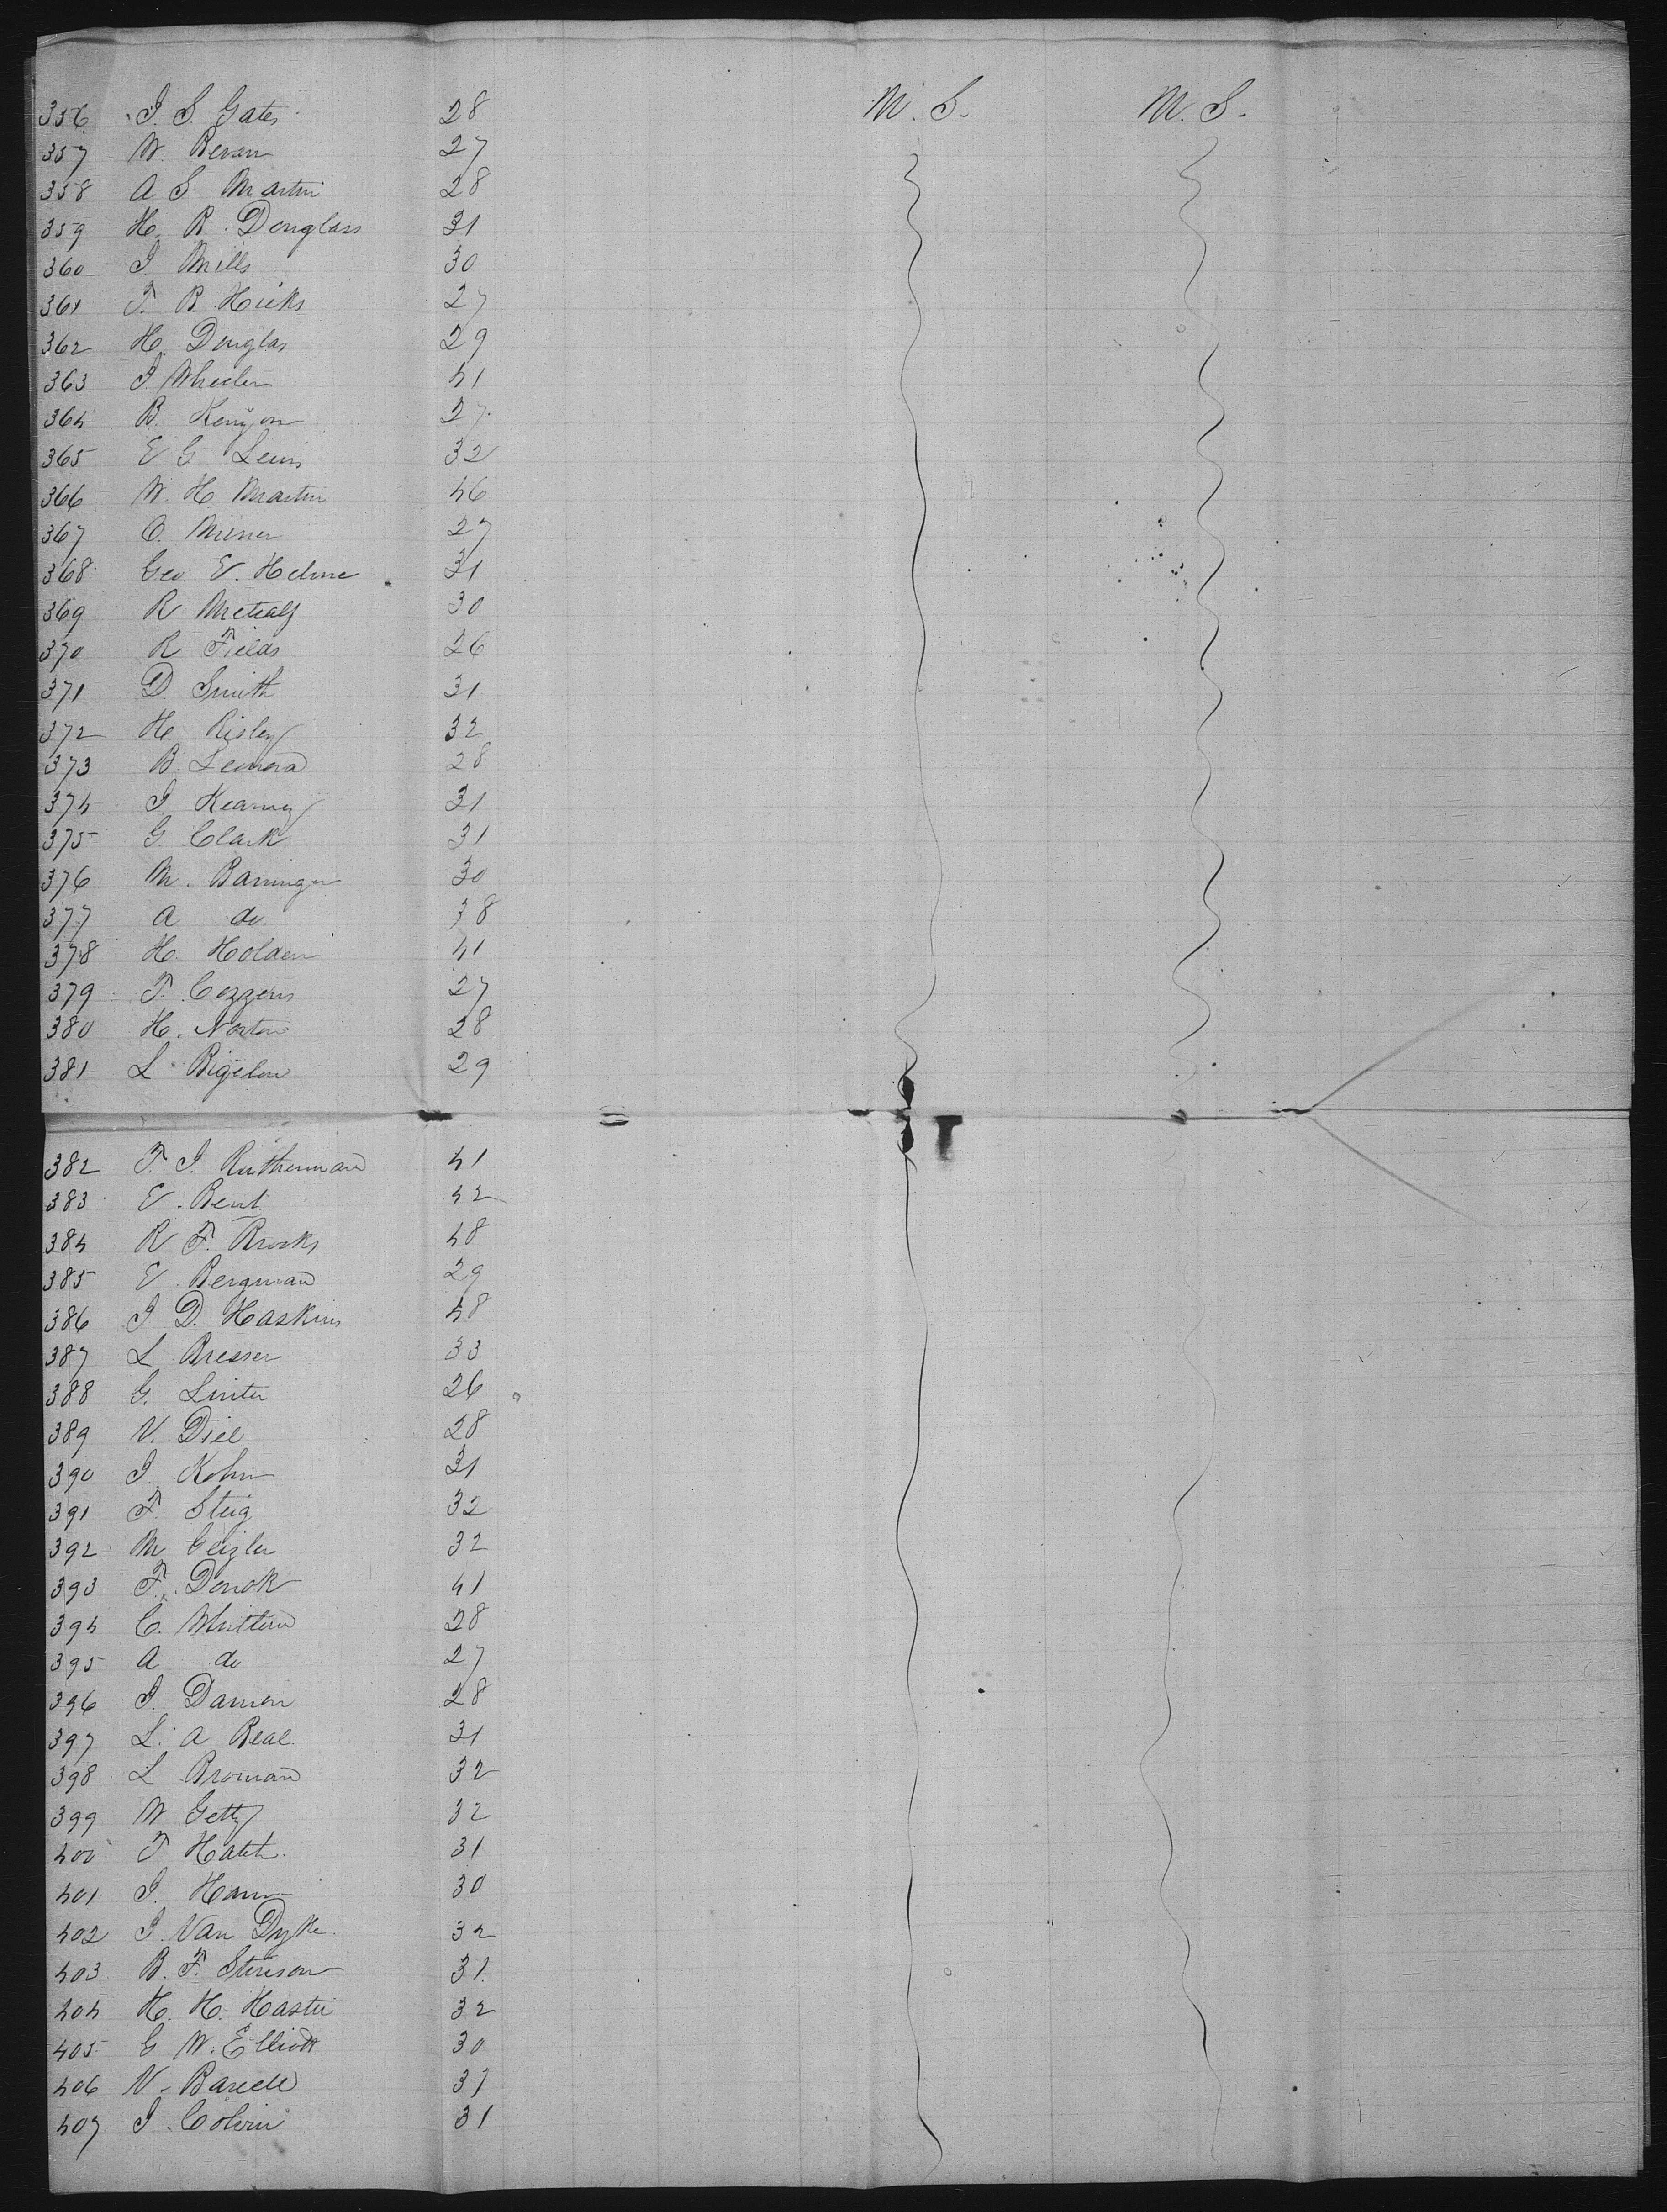 356 J. S. Gates 28 M. S. M. S.
357 W. Bevan 27
358 A S Martin 28
359 H. R. Douglass 31
360 J Mills 30
361 F. B Hicks 27
362 H. Douglas 29
363 J Wheeler 41
364 B. Kenyon 27
365 E G Lewis 32
366 W. H Martin 46
367 O. Miner 27
368 Geo. E. Helme 31
369 R Metcalf 30
370 R Fields 26
371 D. Smith 31
372 H. Risley 32
373 B. Leonard 28
374 J Kearney 31
375 G. Clark 31
376 M. Barringer 30
377 A do. 38
378 H. Holden 41
379 F. Cozzens 27
380 H. Norton 28
381 L Bigelow 29
382 F. J. 41
383 E. Bent 42
384 R F. Brooks 48
385 E. Bergman 29
386 J D. Haskins 48
387 L Bresser 33
388 G. Linter 26
389 V. Diel 28
390 J. Kohn 31
391 F. Steig 32
392 M. Geizler 32
393 F. Donok 41
394 C. 28
395 A do 27
396 J. Damon 28
397 L. A Beal 31
398 L Broman 32
399 W Getty 32
400 F Hatch. 31
401 J. Hann 30
402 J. Van Dyke. 32
403 B. F. Stinson 31
404 H. H. Hastie 32
405 G W. Elliott 30
406 N. 31
407 J. Colvin 31